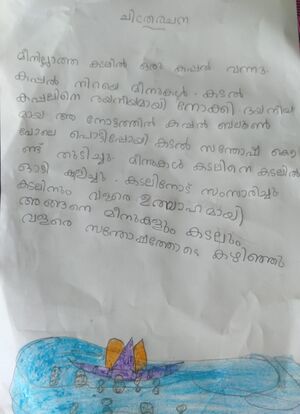 ചിത്രരചന
മീനില്ലാത്ത കടലിൽ ഒരു കപ്പൽ വന്നു.
കപ്പൽ നിറയെ മീനുകൾ. കടൽ
കപ്പലിനെ ദയനീയമായി നോക്കി ദയനീയ
മായ ആ നോട്ടത്തിൽ കപ്പൽ ബലൂൺ
പോലെ പൊട്ടിപ്പോയി കടൽ സന്തോഷം കൊ
ണ്ട് തുടിച്ചു. മീനുകൾ കടലിനെ കടലിൽ
ഓടി കളിച്ചു. കടലിനോട് സംസാരിച്ചും
കടലിനും വളരെ ഉത്സാഹമായി
അങ്ങനെ മീനുകളും കടലും
വളരെ സന്തോഷത്തോടെ കഴിഞ്ഞു